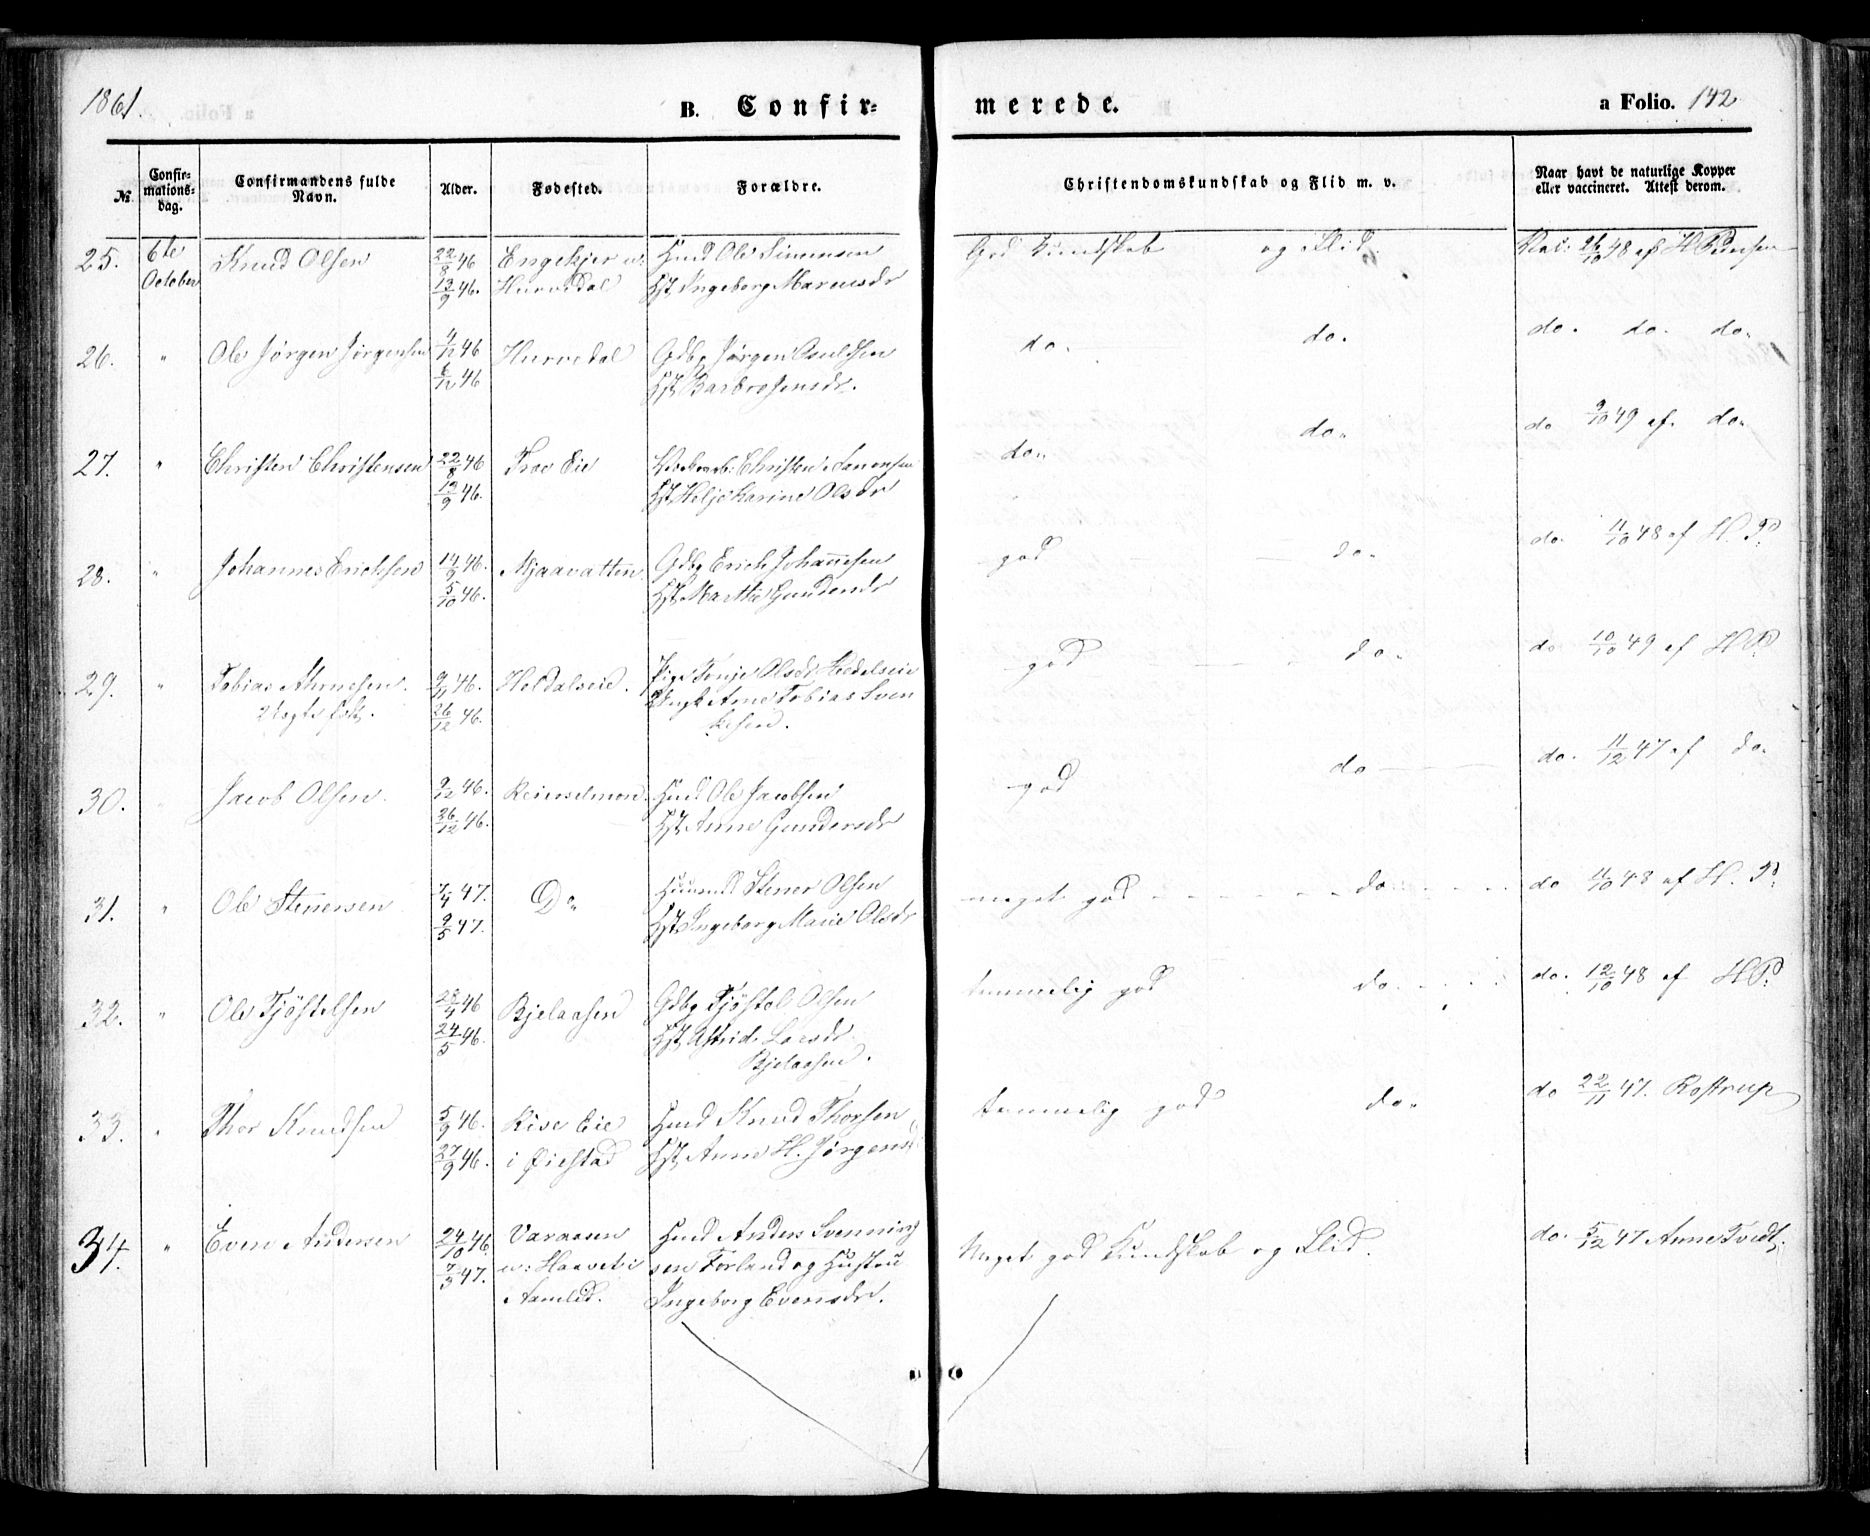 1861.
B. Confir-
merede.
a Folio. 142
№
Confir-
mations-
dag.
Confirmandens fulde
Navn.
Alder.
Fødested.
Forældre.
Christendomskundskab og Flid m. v.
Naar havt de naturlige Kopper
eller vaccineret. Attest derom.
25. 6te October Knud Olsen 22/8 46 13/9 46. Engekjer Hurvedal
Huusmd Ole Simonsen
Hst Ingeborg Marensdr
God Kundskab og Flid
Vac: 26/10 48 af H Pedersen
26. " Ole Jørgen Jørgensen 4/12 46 6/12 46 Hurvedal
Gdbr Jørgen
Hst Barbro Jensdr.
do. do.
do. do. do.
27. " Christen Christensen 22/8 46 13/9 46. Trov Eie
Christen
Hst Helje Karine Olsdr
do. do.
do 9/10 49 af. do.
28. " Johannes Ericksen 14/9 46. 5/10 46. Mjaavatten
Gdbr Erick Johannesen
Hst Marthe
god do.
do. 11/10 48 af H. P.
29. " Tobias 26/12 46. Holdalseie.
Pige Tonje Olsdr
Ungk Arne Tobias Sven
kesen.
god do.
do 10/10 49 af H P.
30. Jacob Olsen. 9/12 46. 26/12 46. Reierselmoen
Huusmd Ole Jacobsen
Hst Anne Gundersdr
god do
do. 11/12 47 af do.
31. " Ole Stenersen 7/4 47. 9/5 47. Do
Huusmd Stener Olsen
Hst Ingeborg Marie Olsdr
meget god do
do 11/10 48 af H. P.
32. " Ole Tjöstelsen 24/5 46. Bjelaasen
Gdbr Tjöstel Olsen
Hst Astrid Larsdr
Bjelaasen.
temmelig god do.
do. 12/10 48 af H P.
33. " Thor Knudsen 5/9 46. 27/9 46. Rise Eie i Øiestad
Huusmd Knud Thorsen
Hst Anne H. Jørgensd
temmelig god do.
do 22/11 47. Rostrup
34. " Even Andersen 24/10 46. 7/3 47. Varaasen u: Haavet i Aamlid.
Huusmd Anders Svenning
sen Førland og Hustru
Ingeborg Evensdr.
Meget god Kundskab og Flid.
do. 5/12 47 Anne Tvedt.